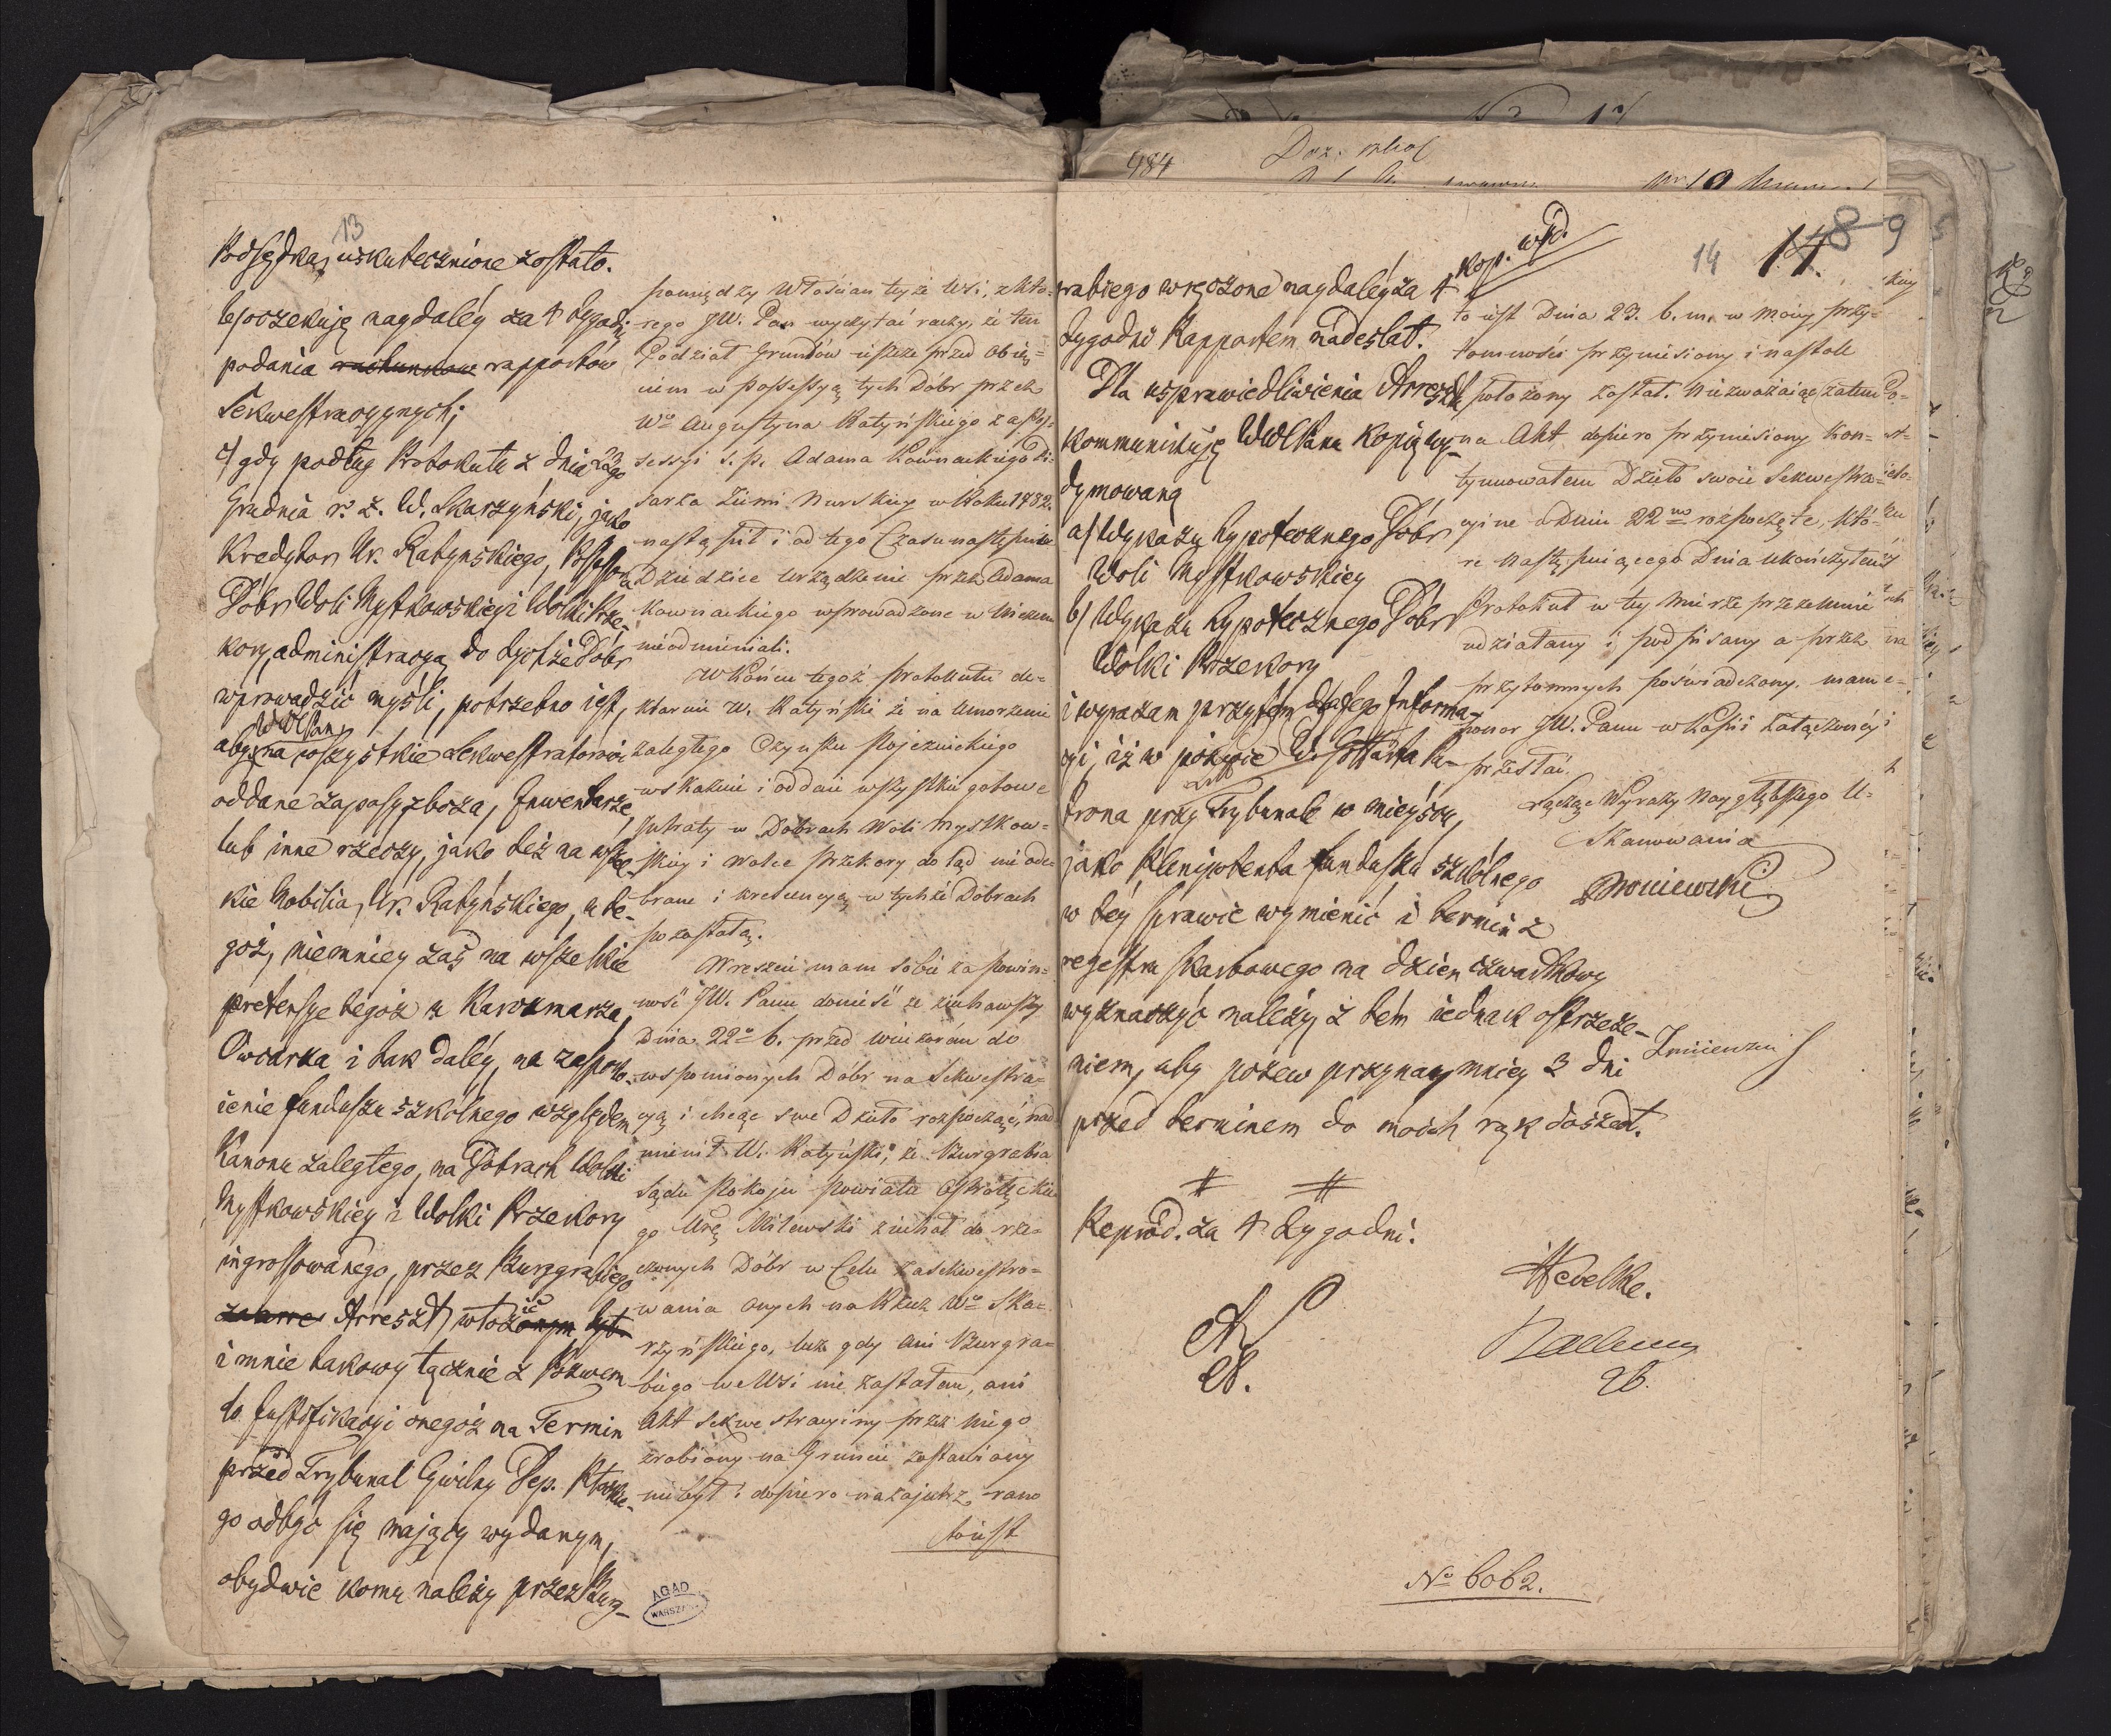 13
Podsędka, uskutecznione zostało.
b/ oczekuję naydaléy za 4 tygodnie
podania rachunkow rapportów
Sekwestracyynych;
c/ gdy podług Protokułu z dnia 23go
Grudnia r. z. W. Skarzyński, jako
Kredytor Ur. Ratynskiego, Possessora
Dóbr Woli Mystkowskiey i Wolki Prze-
kory, administracyą do tychże Dóbr
wprowadzić myśli, potrzebno iest,
WWPan
abyś na wszystkie Sekwestratorowi
oddane zapasy zboża, Inwentarze,
lub inne rzeczy, jako też na wszel-
kie Mobilia, Ur. Ratyńskiego, u te-
goż, niemniey zaś na wszelkie
pretensye tegoż u Karczmarza,
Owczarka i tak daléy, na zaspoko-
ienie funduszu szkólnego względem
Kanonu zaległego, na Dobrach Wolki
Mystkowskiey i Wolki Przekory
ingrossowanego, przez Burgrabiego
Arreszt włożyć
i mnie takowy łącznie z Pozwem
do Justifikacyi onegóż na Termin
przed Trybunał Cywilny Dep. Płockie-
go odbyć się mający wydanym,
obydwie komu należy przez Burg-
pomiędzy Włościan teyże Wsi, z któ-
rego JW. Pan wyczytać raczy, że ten
Podział Gruntów ieszcze przed obię-
ciem w possessyą tych Dóbr przez
Wo Augustyna Ratyńskiego za pos-
sessyi ś. p. Adama Kownackiego Pi-
sarza Ziemi Nurskiey w Roku 1782
nastąpił i od tego Czasu następnie
Dziedzice urządzenie przez Adama
Kownackiego wprowadzone w Niczem
nieodmieniali.
W Końcu tegoż protokułu de-
klaruie W. Ratyński że na Umorzenie
zaległego Czynszu Pojezuickiego
wskażnie i oddaie wszystkie gotowe
Intraty w Dobrach Woli Mystkow-
skiey i Wolce Przekory do tąd nie ode-
brane i krescencyą w tychże Dobrach
pozostałą.
Wreszcie mam sobie za powin-
ność JW. Panu donieść że ziechawszy
Dnia 22o b. przed wieczorem do
wspomionych Dóbr na Sekwestra-
cyą i chcąc swe Dzieło rozpocząć, nad-
mienił W. Ratyński, że Burgrabia
Sądu Pokoju powiatu Ostrołęckie-
go Urę Milewski ziechał do rze-
czonych Dóbr w Celu zasekwestro-
wania onych na Rzecz Wo Ska-
rzyńskiego, lecz gdy ani Burgra-
biego we Wsi nie zastałem, ani
Akt Sekwestracyiny przez niego
zrobiony na Gruncie zostawiony
nie był i dopiero nazajutrz rano
to iest
AGAD
WARSZAWA
984
Doz. szkol
10
14
14.
8-9
kop. wid.
grabiego wręczone naydaléy za 4
tygodnie Rapportem nadesłał.
Dla usprawiedliwienia Arresztu
kommunikuję WWPanu Kopię wy-
dymowaną
a/ Wykazu hypotecznego Dóbr
Woli Mystkowskiey
b/ Wykazu hypotecznego Dóbr
Wolki Przekory
i wyrażam przytem dla Jego Informa-
cyi, iż w pozwie W. Pa-
trona przy Trybunale w mieyscu,
jako Plenipotenta funduszu szkólnego
w tey sprawie wymienić i termin z
regestru skarbowego na dzień czwartkowy
wyznaczyć należy, z tém iednak ostrzeże-
niem, aby pozew przynaymniey 3 dni
przed terminem do moich rąk doszedł.
Reprod. za 4 tygodni.
28.
to iest Dnia 23. b. m. w moiey przy-
tomności przyniesiony i na stole
położony został. Niezważaiąc zatem
na Akt dopiero przyniesiony kon-
tynuowałem Dzieło swoie Sekwestra-
cyine w Dniu 22no rozpoczęte, któ-
re następuiącego Dnia ukończyłem
Protokuł w tey mierze przezemnie
udziałany i podpisany a przez
przytomnych poświadczony, mam
honor JW. Panu w Kopii załączoney
przesłać.
Łącząc Wyrazy naygłębszego U-
Szanowania
Broniewski
Hevelke.
28.
No 6062.